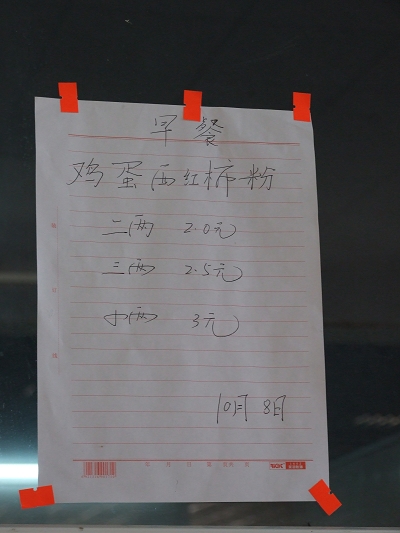 早餐
鸡蛋西红柿粉
二两 2.0元
三两 2.5元
两 3元
10月8日